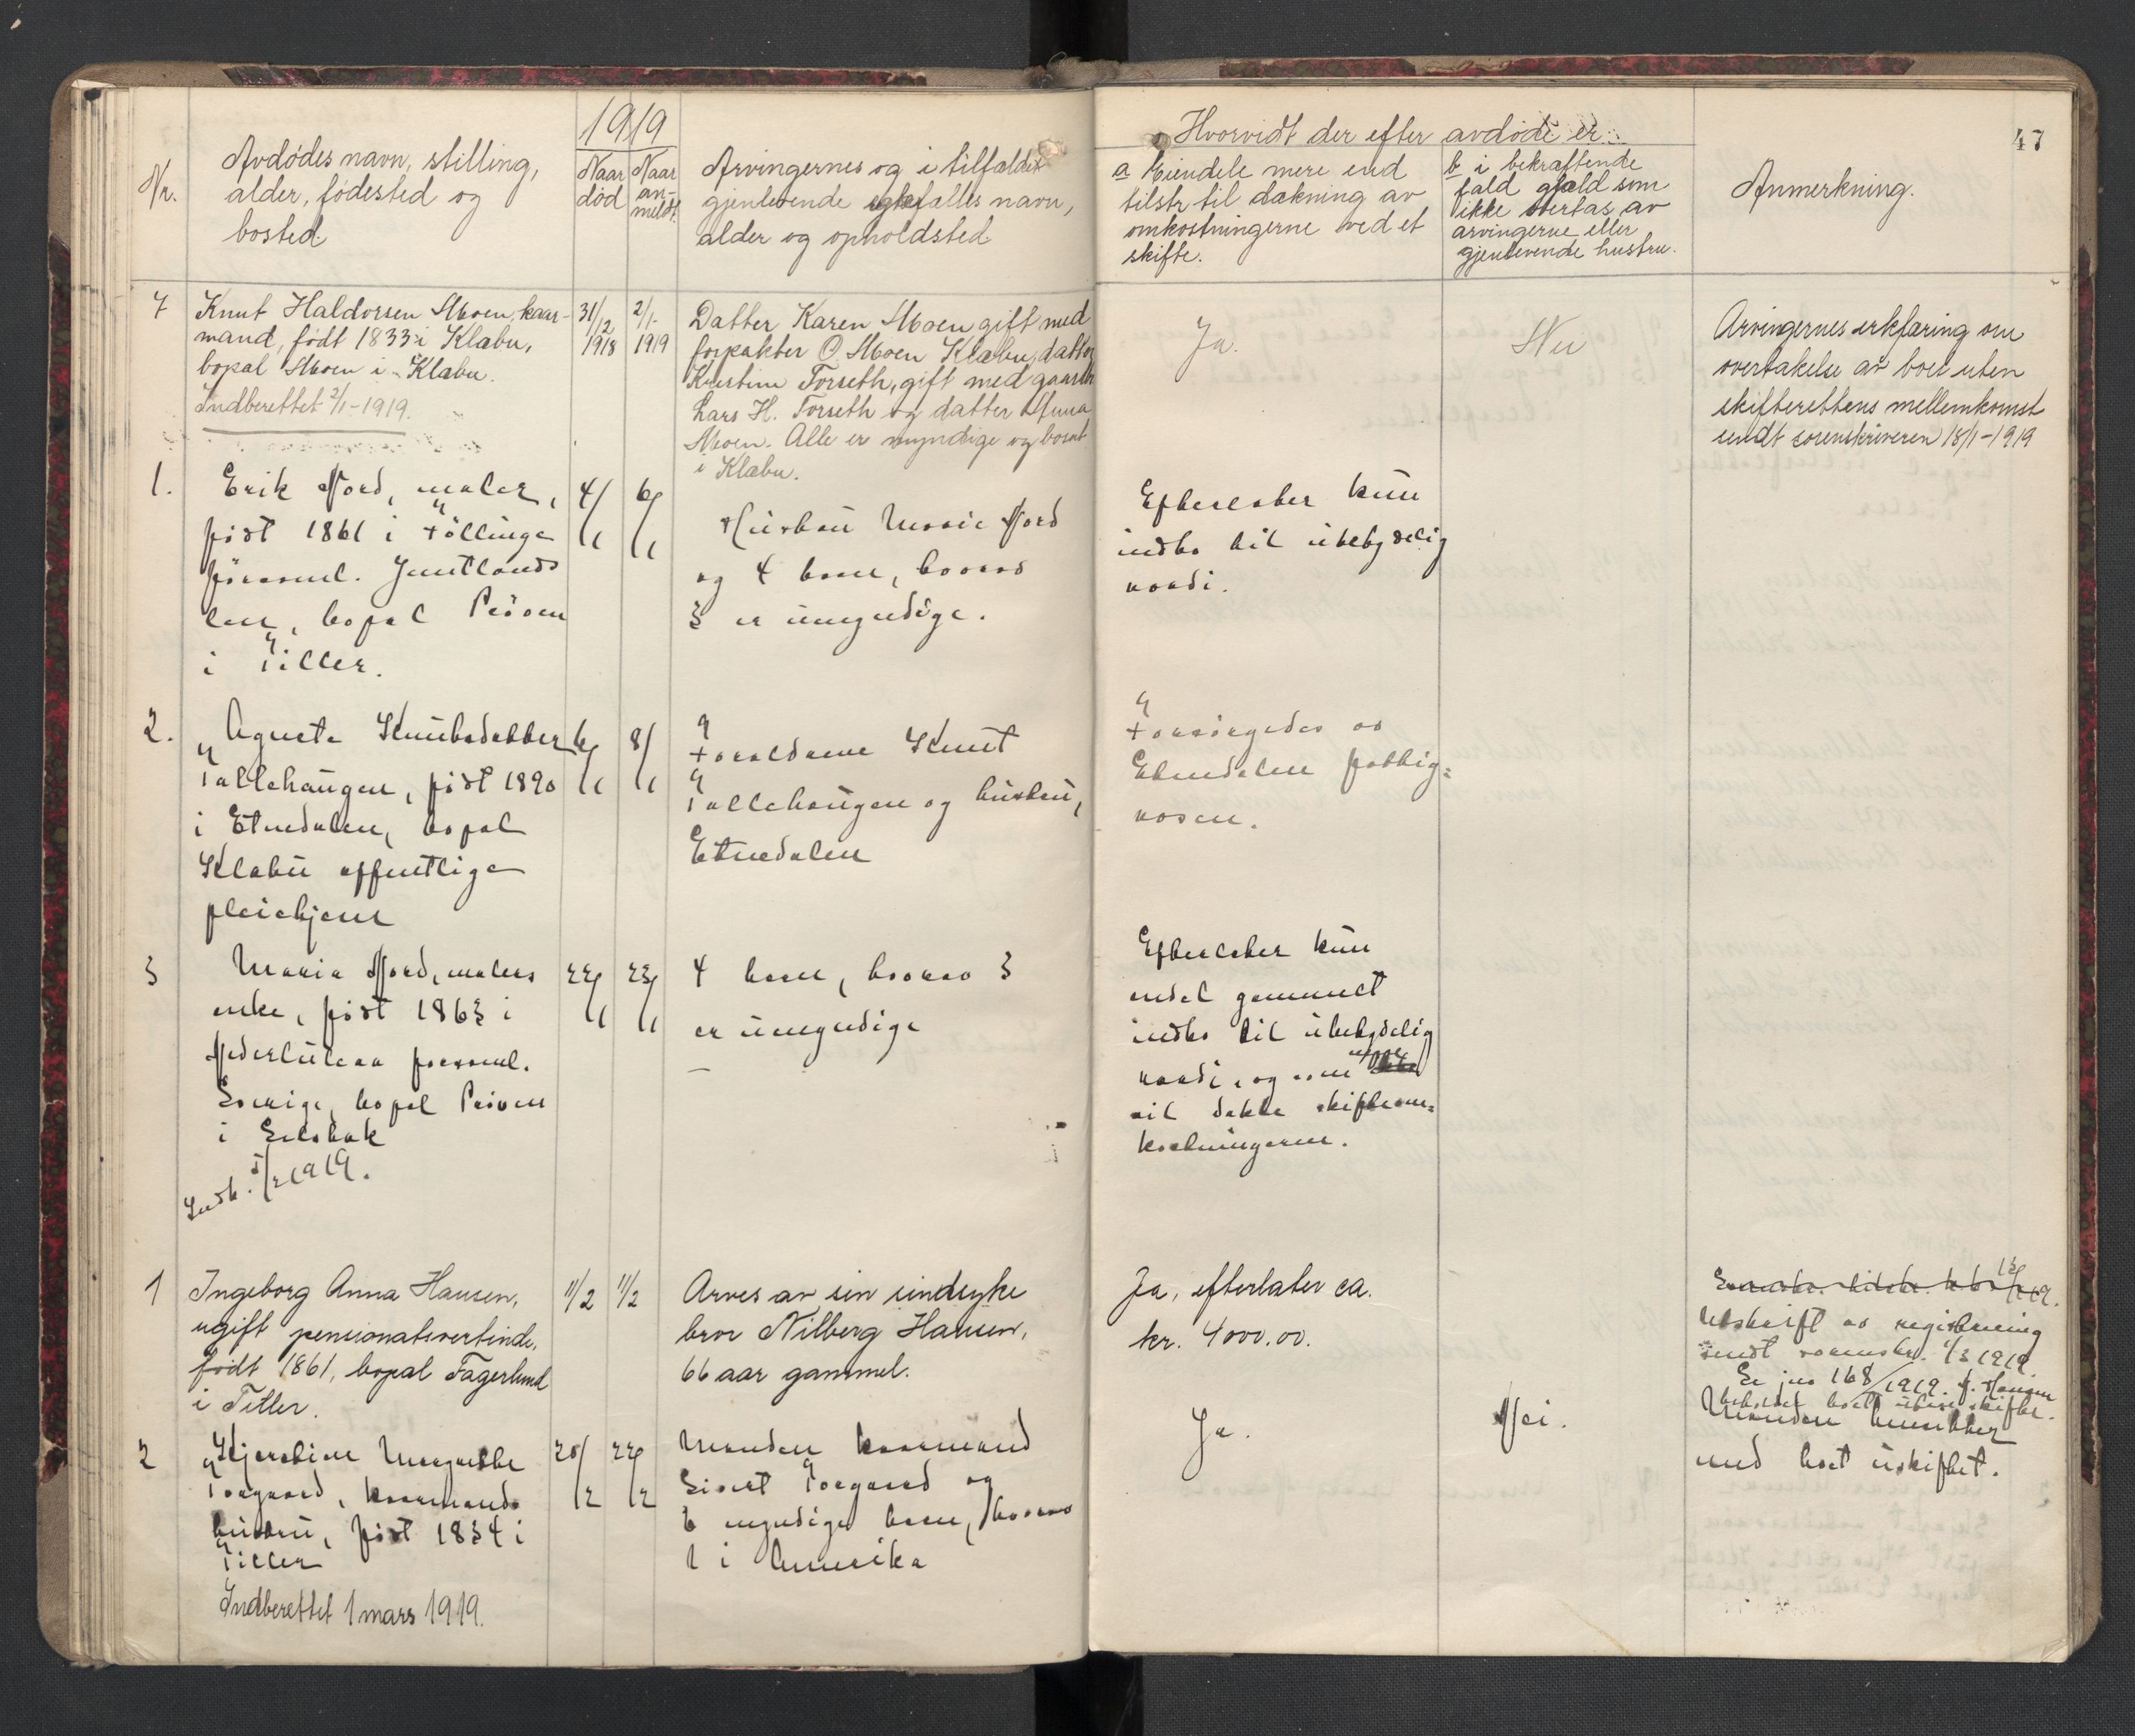 47
1919
Nr.
Avdødes navn, stilling,
alder, fødested og
bosted.
Naar
død
Naar
an-
meldt.
Arvingernes og i tilfældet
gjenlevende egtefælles navn,
alder og opholdsted
Hvorvidt der efter avdøde er
a Mindele mere end
tilstr til dækning av
omkostningerne ved et
skifte.
b i bekræftende
fald gjæld som
ikke overtas av
arvingerne eller
gjenlevende hustru.
Anmerkning.
7
Knut Haldorsen Moen, kaar-
mand, født 1833 i Klæbu,
bopæl Moen i Klæbu.
Indberettet 2/1-1919.
31/12
1918
2/1-
1919
Datter Karen Moen gift med
forpakter O. Moen Klæbu, datter
Kirstine Forseth, gift med gaardbr
Lars H. Forseth og datter Anna
Moen. Alle er myndige og bosat
i Klæbu.
Ja.
Nei
Arvingernes erklæring om
overtakelse av boet uten
skifterettens mellemkomst
sendt sorenskriveren 18/1-1919
1.
Erik Nord, maler,
født 1861 i Föllinge
församl. Jemtlands
len, bopæl Presven
i Tiller.
4/1
6/1
Hustru Marie Nord
og 4 barn, hvorav
3 er umyndige.
Efterlater kun
indbo til ubetydelig
værdi.
2.
Agnete Knutsdatter
Tallehaugen, født 1890
i Etnedalen, bopæl
Klæbu offentlige
pleiehjem
6/1
8/1
Forældrene Knut
Tallehaugen og hustru,
Etnedalen
Forsørgedes av
Etnedalen fattig-
væsen.
3
Maria Nord, malers
enke, født 1863 i
Nederluleaa forsaml.
Sverige, bopæl
i Selsbak
Indb. 5/2 1919.
22/1
23/1
4 barn, hvorav 3
er umyndige
Efterlater kun
endel gammelt
indbo til ubetydelig
værdi, og som neppe
vil dække skifteom-
kostningerne.
1
Ingeborg Anna Hansen,
ugift pensionatsvertinde,
født 1861, bopæl Fagerlund
i Tiller.
11/2
11/2
Arves av sin sindsyke
bror Nilberg Hansen,
66 aar gammel.
Ja, efterlater ca.
kr. 4000.00.
Utskrift av registrering
sendt sorenskr. 1/3 1919.
Se jno 168/1919. f. Hansen
beholdt boet uten skifte.
2
Kjerstine Margrethe
Torgaard, kaarmands
hustru, født 1834 i
Tiller
Indberettet 1 mars 1919.
20/2
22/2
Manden kaarmand
Sivert Torgaard og
6 myndige barn, hvorav
1 i Amerika
Ja.
Nei.
Manden hensitter
med boet uskiftet.